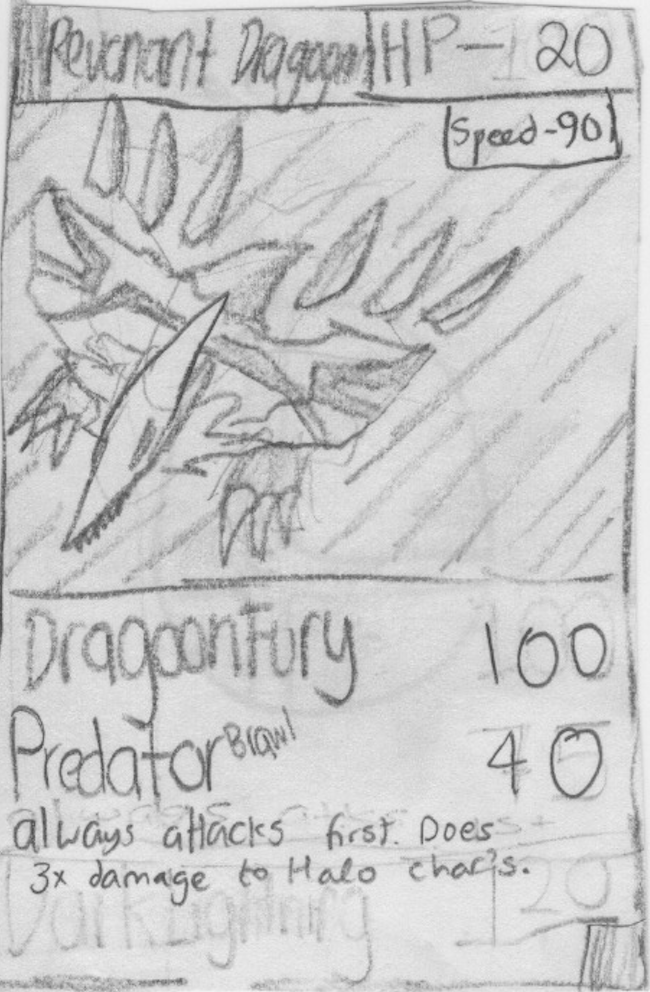 Revenant Dragoon HP-20
Speed-90
Dragoon Fury 100
Predator Brawl 40
always attacks first. Does
3x damage to Halo char's.
Dark Lightning 120